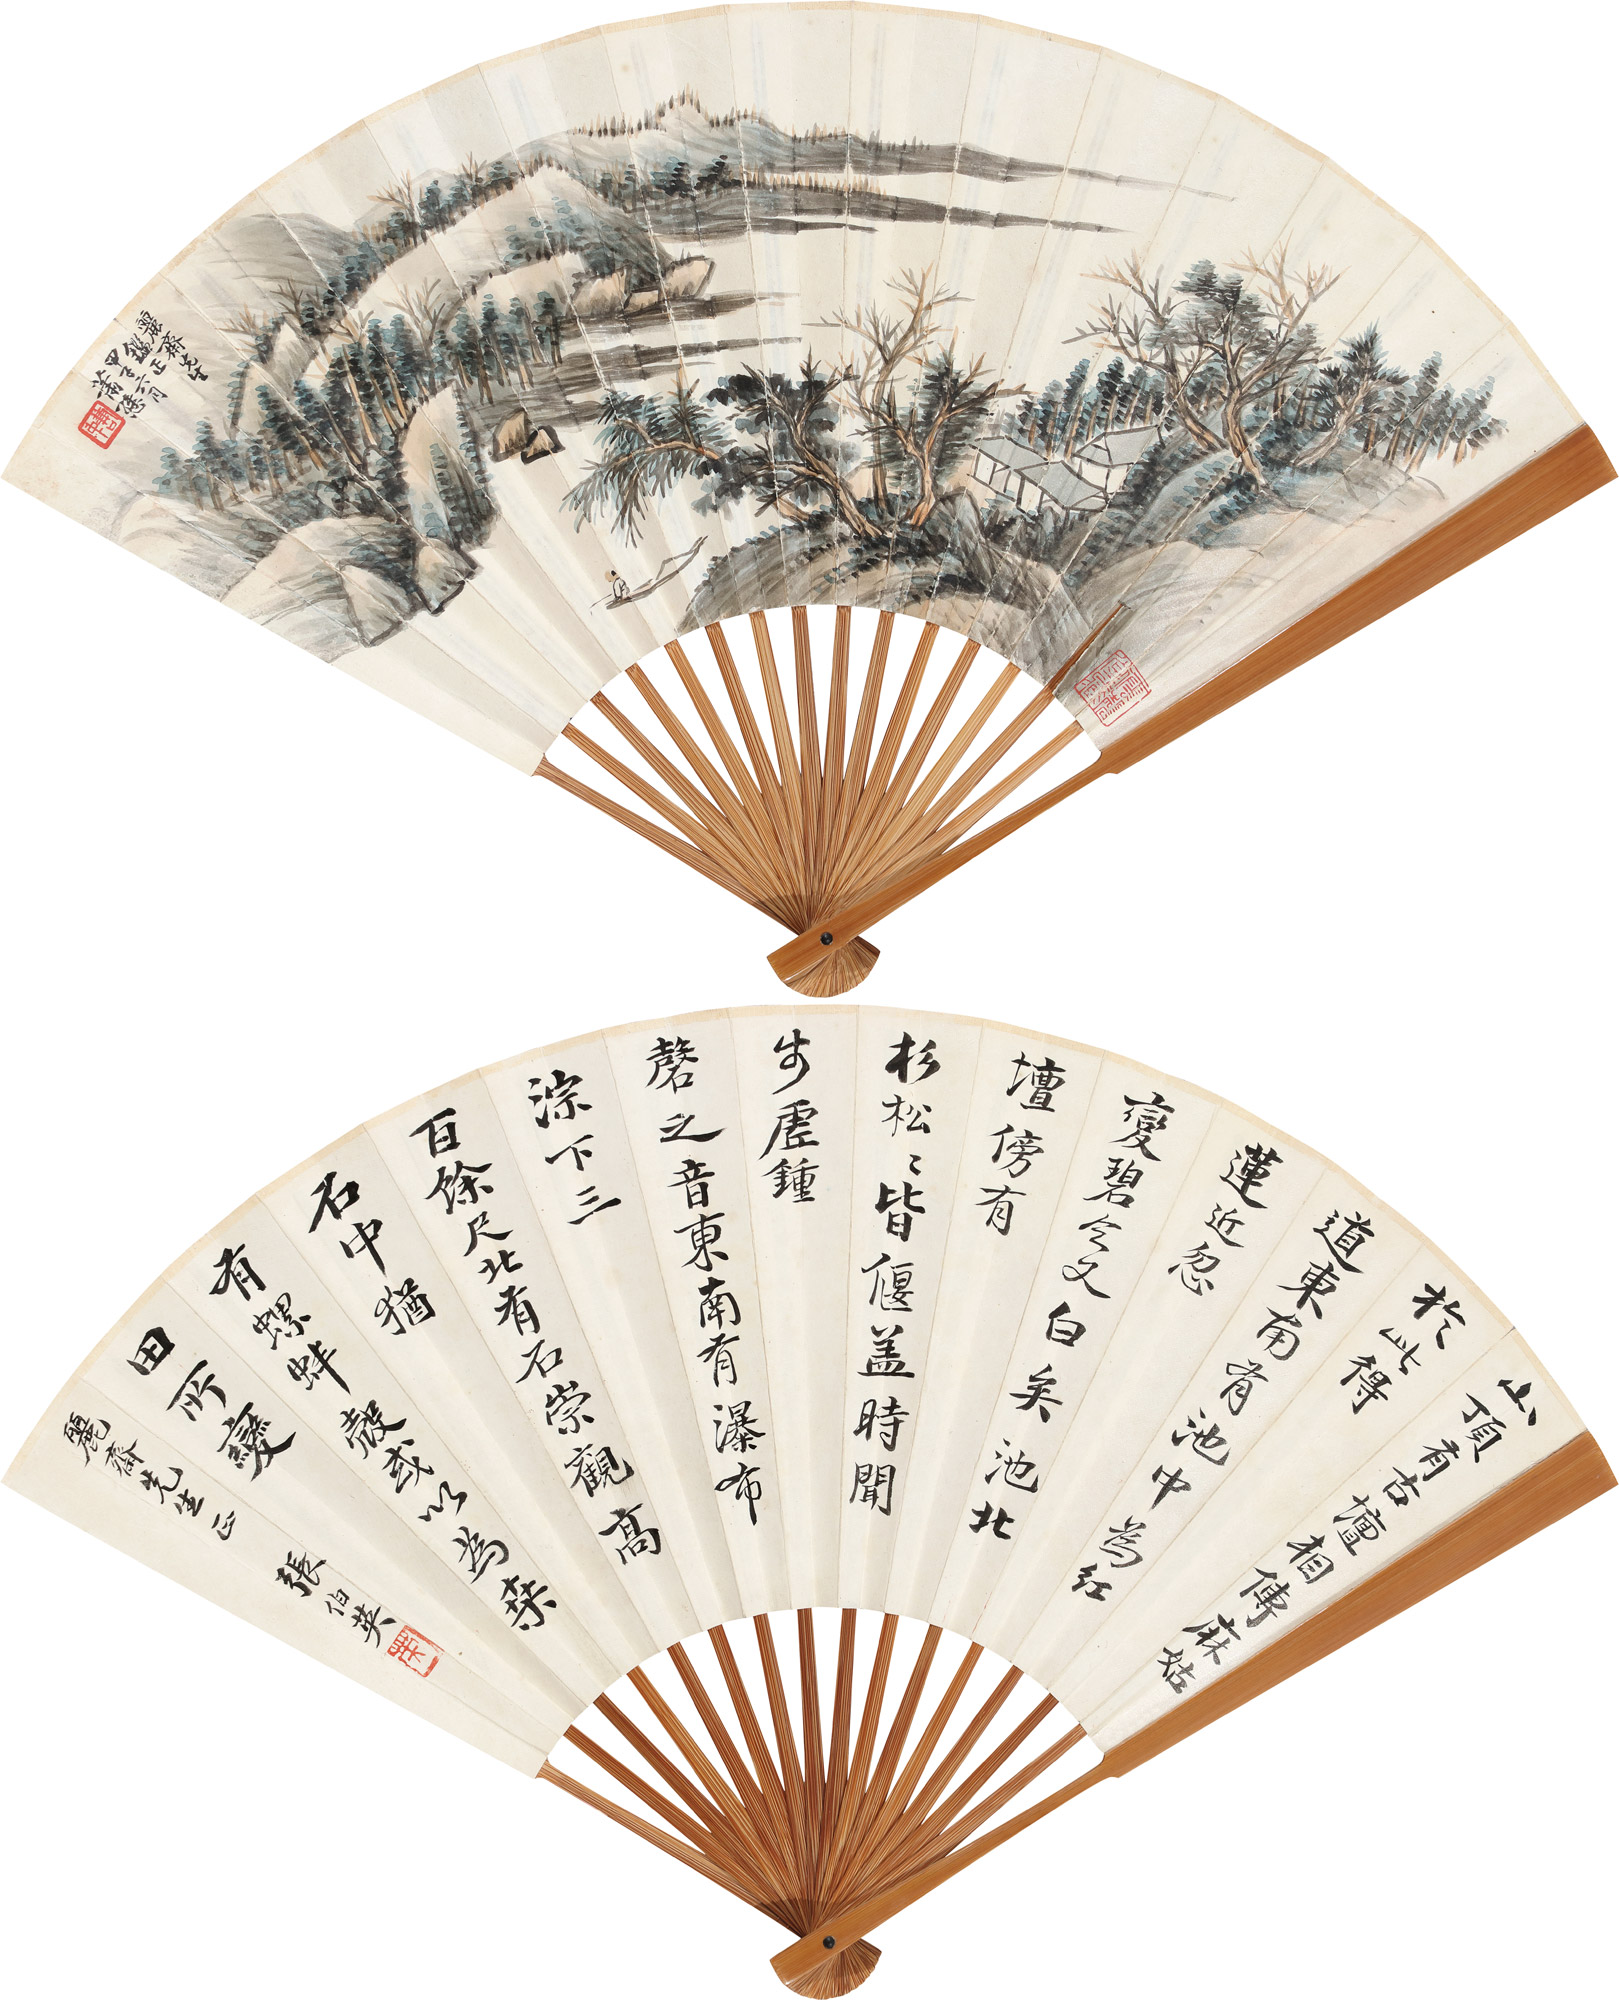 麗齋先生
鑑正
甲子六月
蕭愻
山頂有古壇相傳麻姑
於此得
道東南有池中為紅
蓮近忽
變碧今又白矣池北
壇傍有
杉松〻皆偃蓋時聞
步虛鍾
磬之音東南有瀑布
淙下三
百餘尺北有石崇觀高
石中猶
有螺蚌殼或以為桑
田所變
麗齋先生正
張伯英